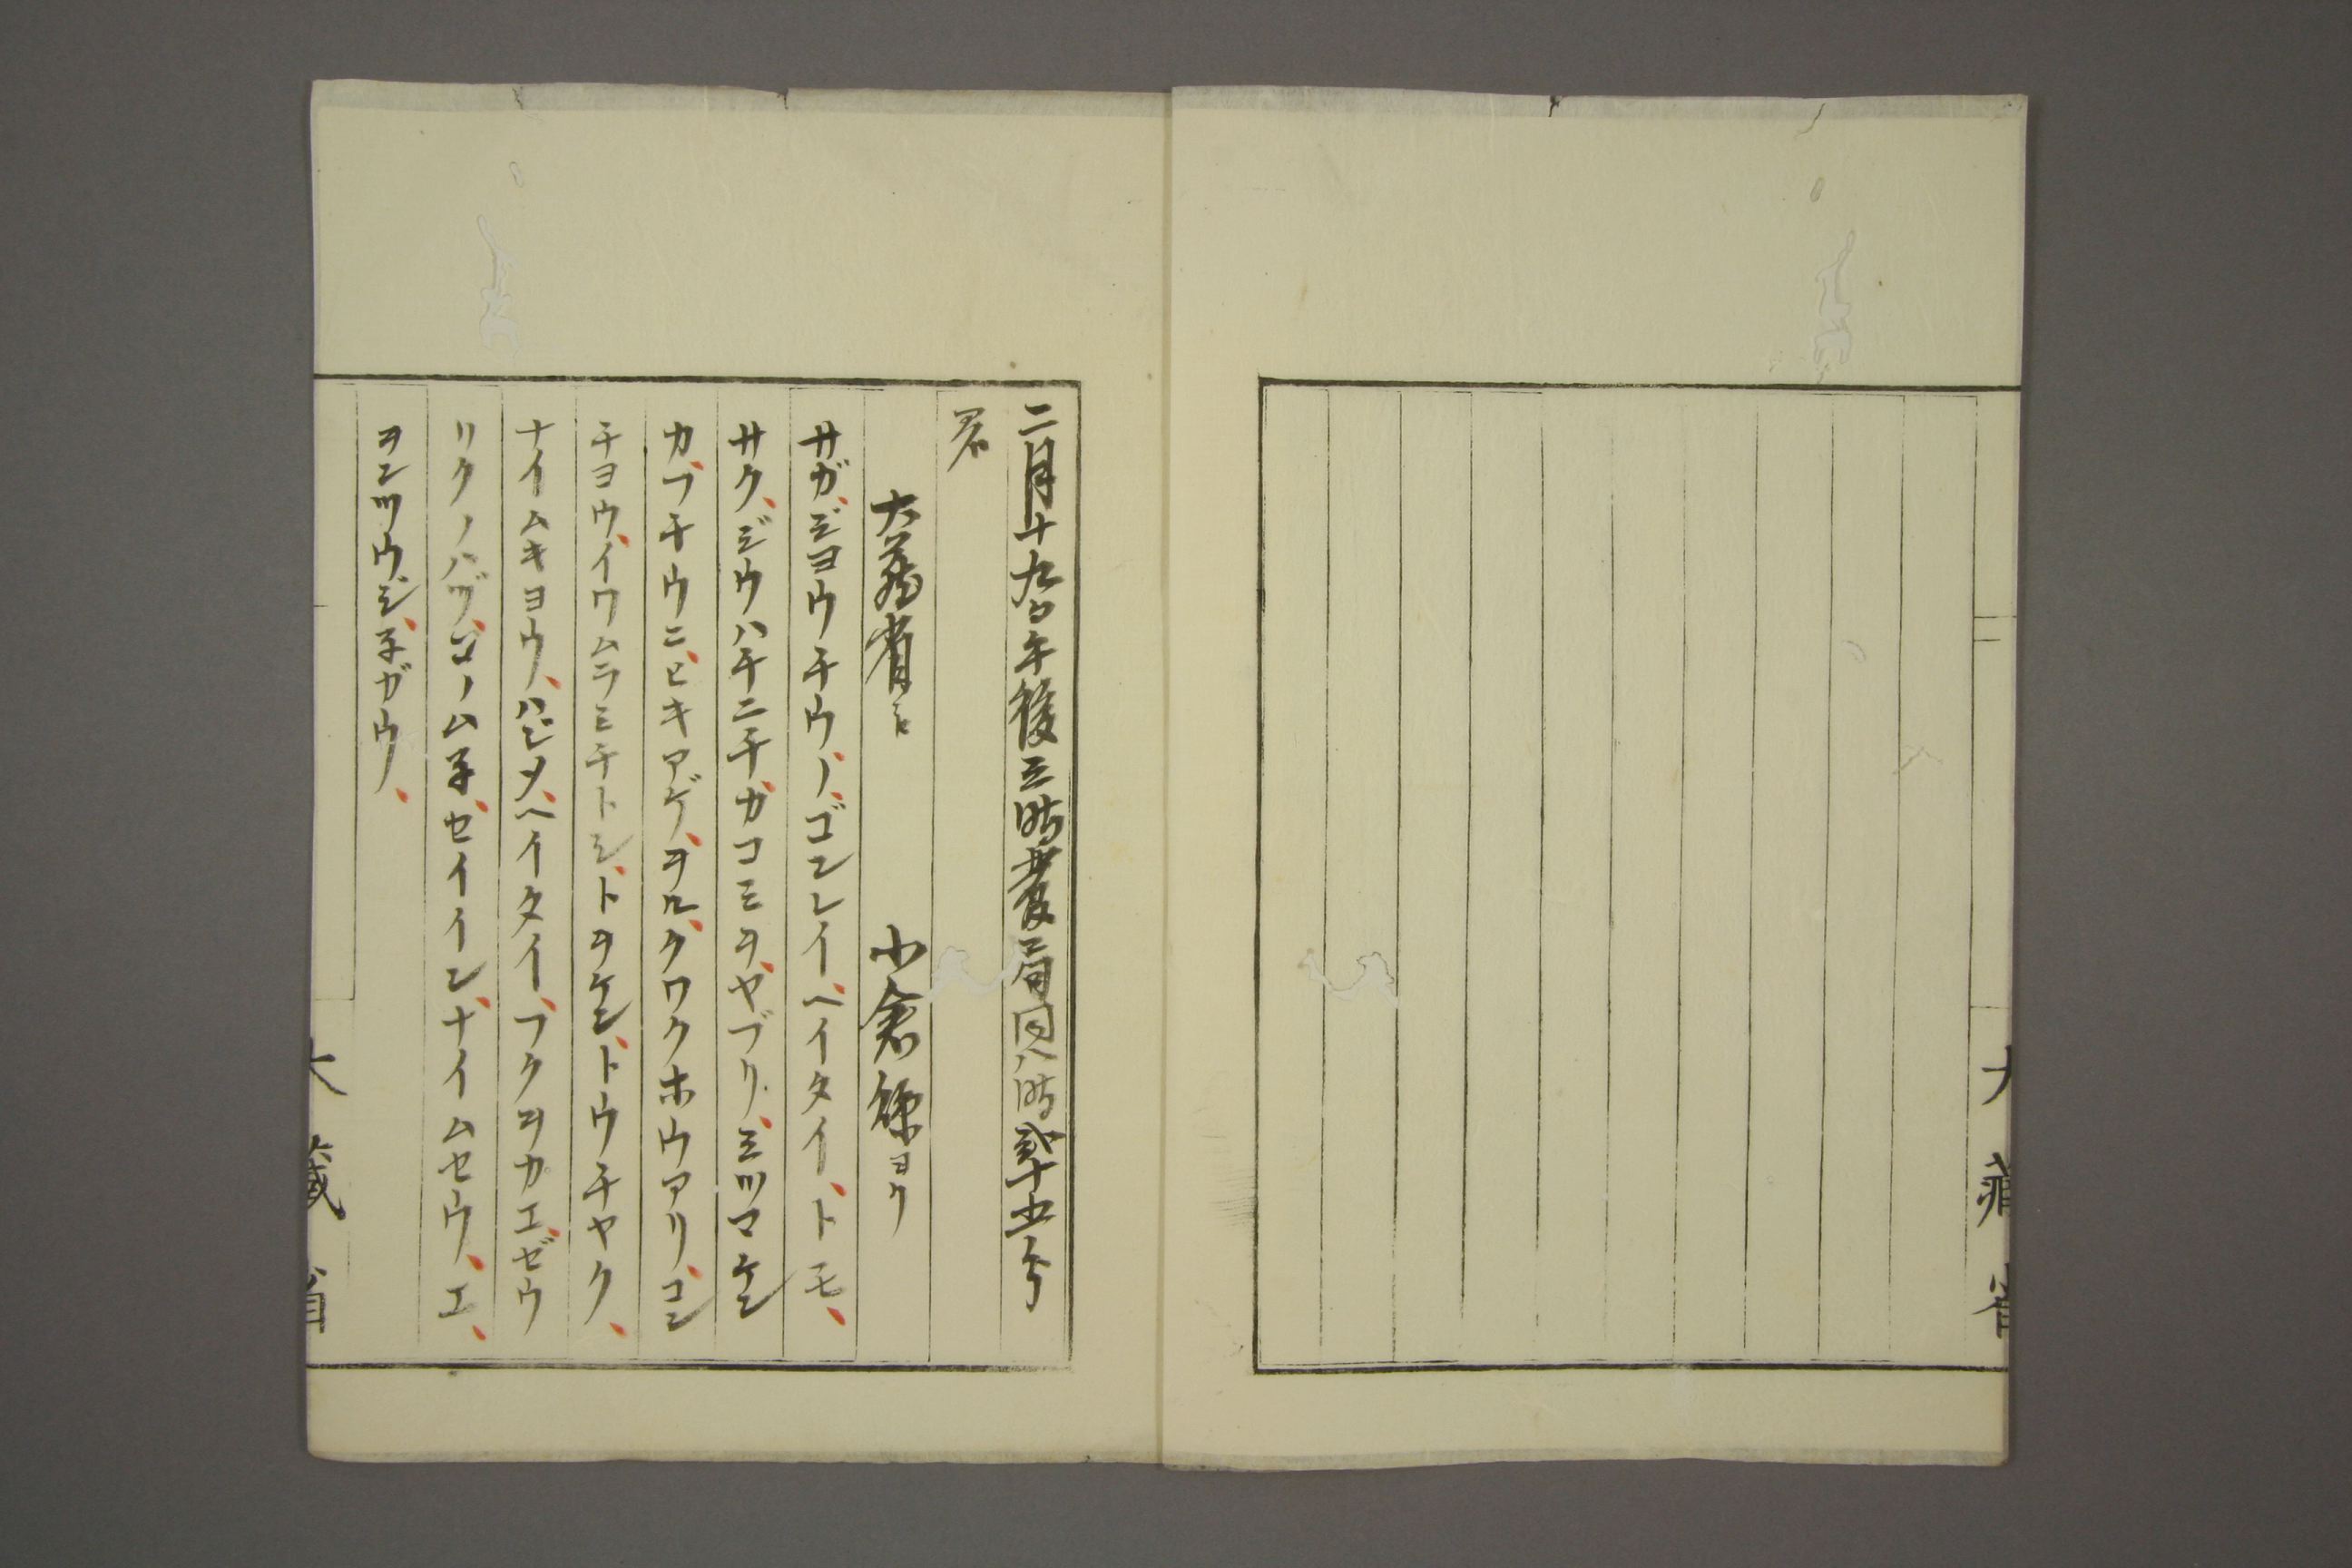 大藏省
二月十九日午後三時發局同八時貳十五分
着
大藏省ヱ 小倉縣ヨリ
サガ、ジヨウチウ、ノ、ゴンレイ、ヘイタイ、トモ、
サク、ジウハチニチ、カコミヲ、ヤブリ、ミツマケン
カ、フチウニ、ヒキアゲ、ヲル、クワクホウアリ、コン
チヨウ、イワムラミチトシ、トヲケン、トウチヤク、
ナイムキヨウ、ハジメ、ヘイタイ、フクヲカエ、ゼウ
リクノハヅ、コノムネ、セイイン、ナイムセウ、エ、
ヲンツウジ、ネガウ、
大藏省